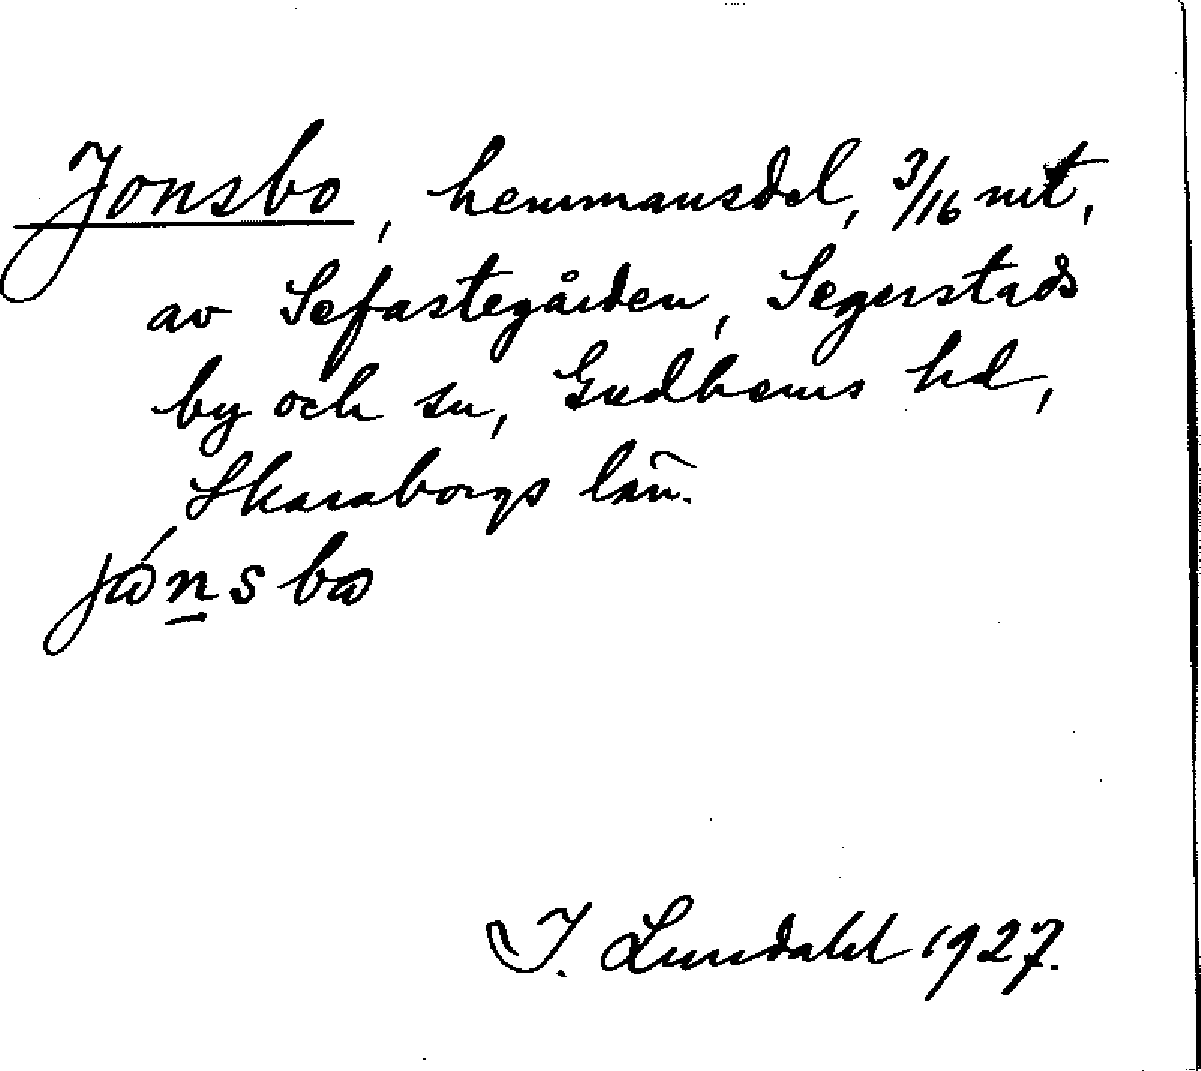 Jonsbo, hemmansdel, 3/16 mt,
av Sefastegården, Segerstads
by och sn, Gudhems hd,
Skaraborgs län.
jónsbo
I. Lundahl 1927.